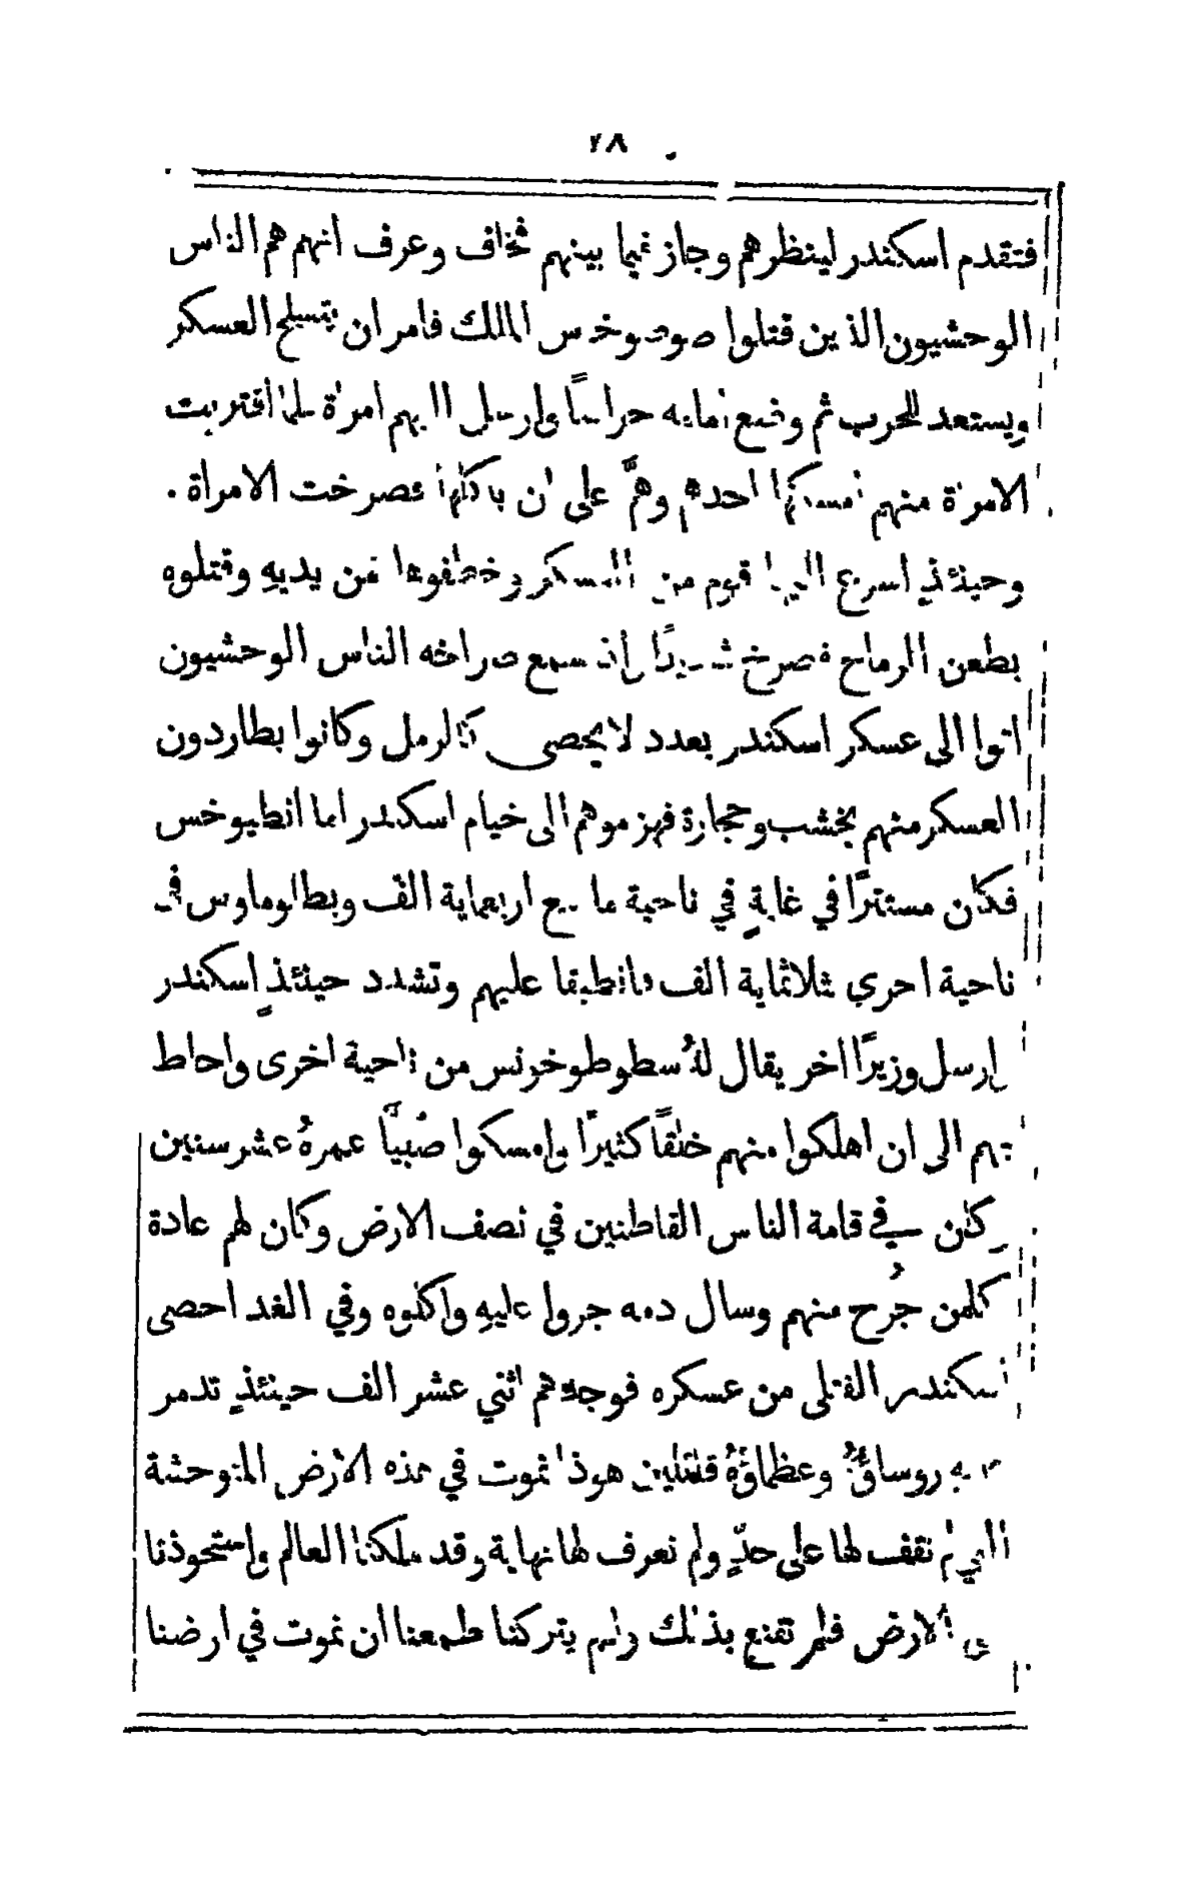 ٢٨
فتقدم اسكندر لينظرهم وجاز فيما بينهم فخاف وعرف انهم هم الناس
الوحشيون الذين قتلوا صوصوخرس الملك فامر ان يتسلح العسكر
ويستعد للحرب ثم وضع امامه حراسًا وارسل اليهم امراة فلما اقتربت
الامراة منهم امسكها احدهم وهمَّ على ان ياكلها فصرخت الامراة .
وحينئذٍ اسرع اليها قوم من العسكر وخطفوها من يديهِ وقتلوه
بطعن الرماح فصرخ شديدًا واذ سمع صراخه الناس الوحشيون
اتوا الى عسكر اسكندر بعدد لا يحصى كالرمل وكانوا يطاردون
العسكر منهم بخشب وحجارة فهزموهم الى خيام اسكندر اما انطيوخس
فكان مستترًا في غابةٍ في ناحية ما مع اربعماية الف وبطالوماوس في
ناحية اخرى بثلاثماية الف فانطبقا عليهم وتشدد حينئذٍ اسكندر
وارسل وزيرًا اخر يقال لهُ سطوطوخرنس من ناحية اخرى واحاط
بهم الى ان اهلكوا منهم خلقًا كثيرًا وامسكوا صُبيًّا عمرهُ عشر سنين
وكان في قامة الناس القاطنين في نصف الارض وكان لهم عادة
كلمن جُرح منهم وسال دمه جروا عليهِ واكلوه وفي الغد احصى
اسكندر القتلى من عسكره فوجدهم اثني عشر الف حينئذٍ تدمر
روساؤُهُ وعظماؤُهُ قائلين هوذا نموت في هذه الارض المتوحشة
التي لم نقف لها على حدٍّ ولم نعرف لها نهاية وقد ملكنا العالم واستحوذنا
على الارض فلم نقنع بذلك ولم يتركنا طمعنا ان نموت في ارضنا